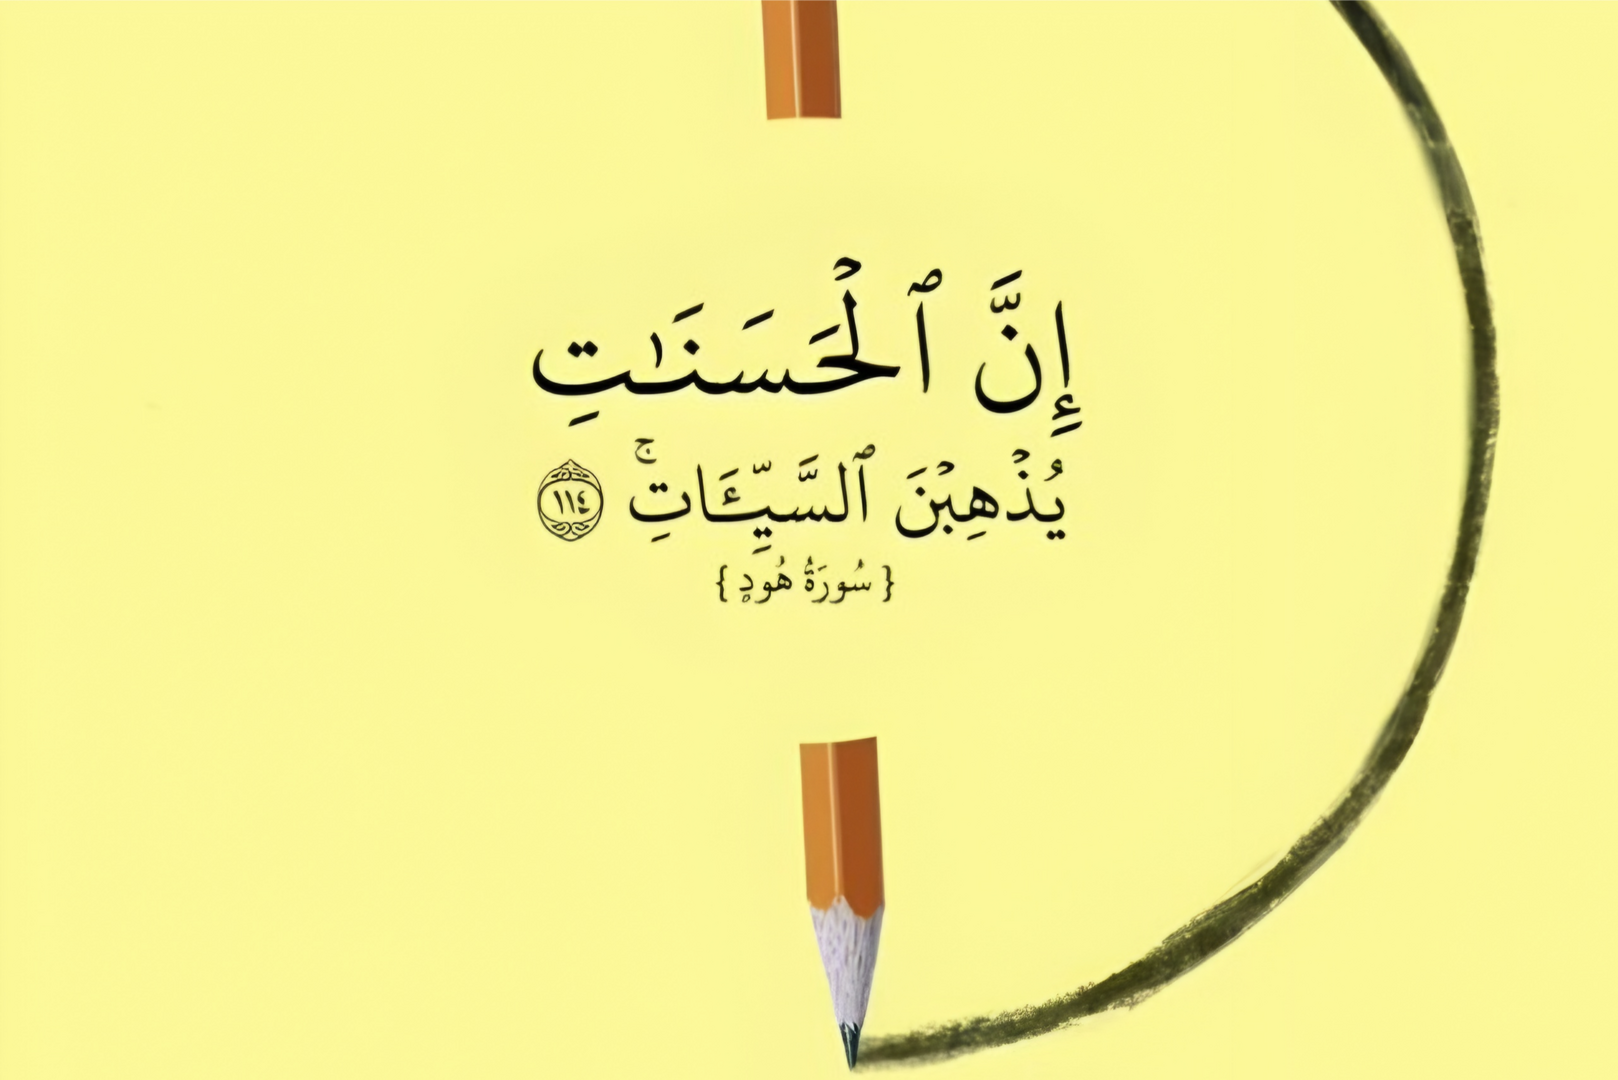 إِنَّ ٱلْحَسَنَٰتِ
يُذْهِبْنَ ٱلسَّيِّـَٔاتِۚ ١١٤
{ سُورَةُ هُودٍ }